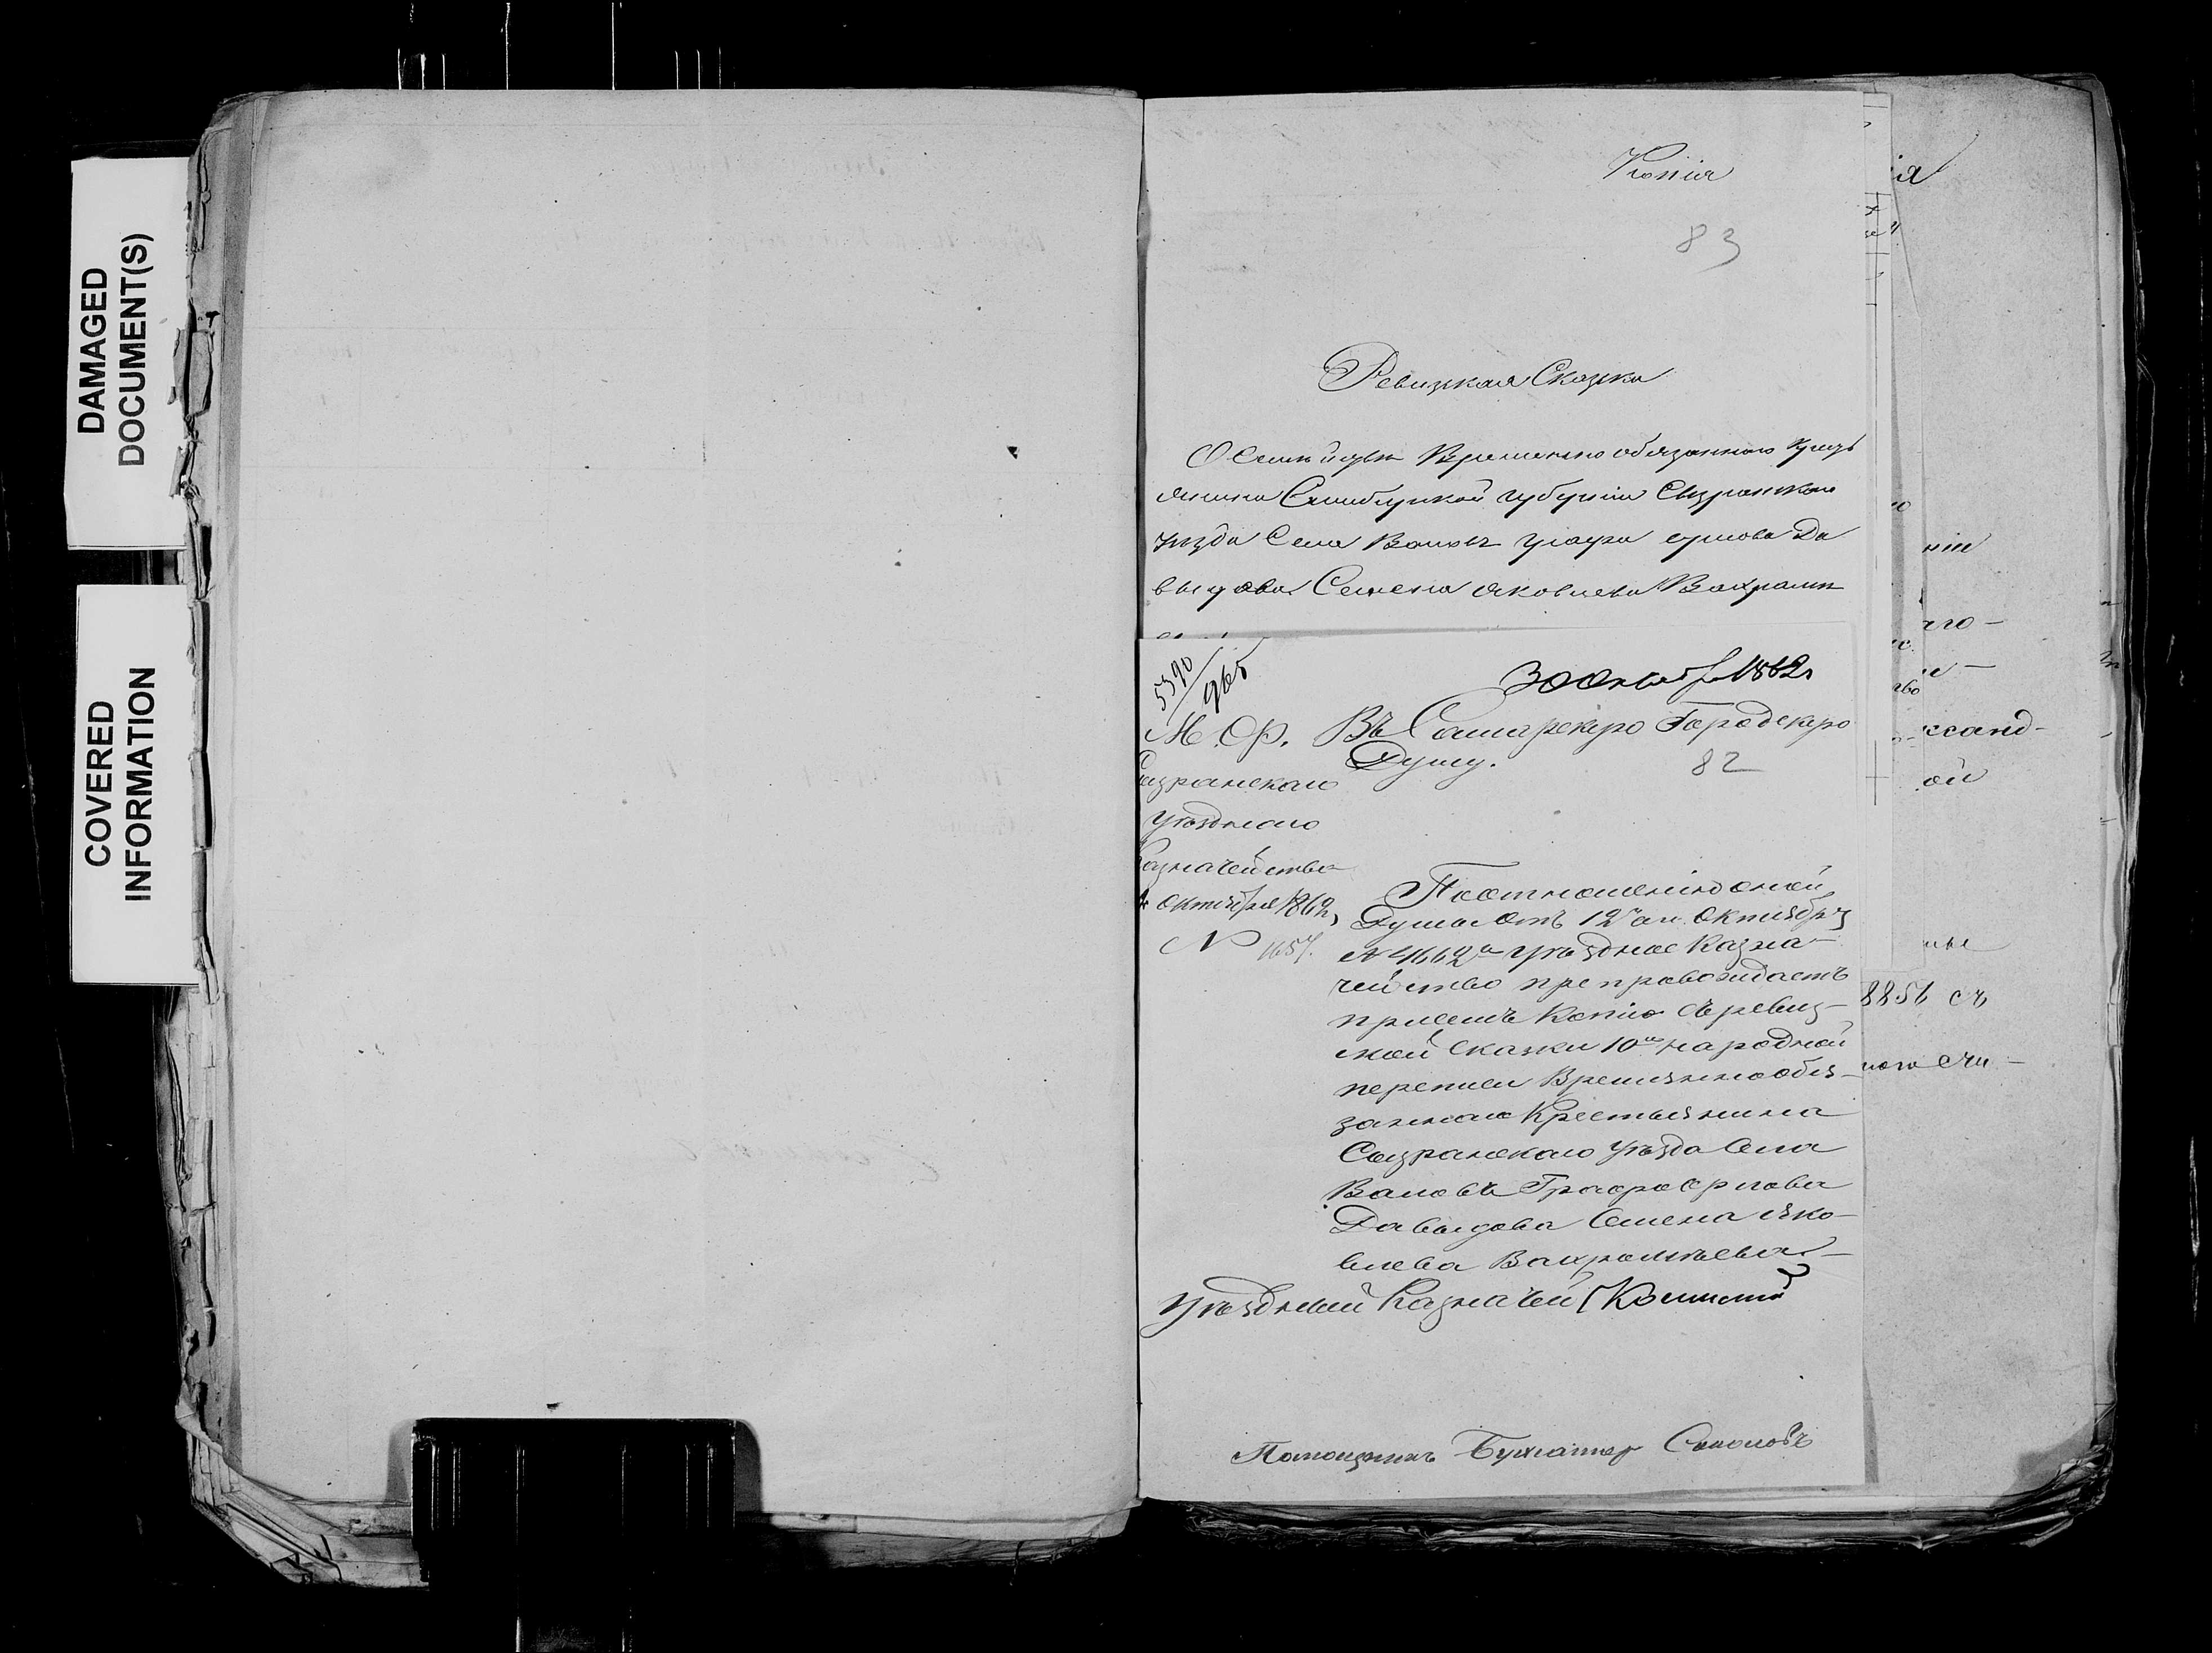 DAMAGED
DOCUMENT(S)
COVERED
INFORMATION
Копiя
83
Ревизкая Сказка
О Семействѣ Временно обязаннаго Кресть
янина Симбирской губернiи Сызранскаго
уѣзда СелаВаловъ графа орлова Да
выдова Семена Яковлева Вахрамѣ
5390/965
30 Октября 1862
М. Ф. Въ Самарскую Городскую
Сызранскаго Думу. 82
Уѣзднаго
Казначейства
Октября 1862, По отношенiю оной
№ 1657. Думы отъ 12го Октября
№ 4662й Уѣздное Казна-
чейство препровождаетъ
при семъ Копiю съ ревиз-
ской сказки 10й народной
переписи Временнообя-
заннаго Крестьянина
Сызранскаго Уѣзда Села
Валовъ Графа Орлова
Давыдова Семена Яко-
влева Вахрамѣева
Уѣздный Казначей
Помощникъ Бухгалтер Соколовъ
iя
нiи
аго-
ссанд-
ой
8851 съ